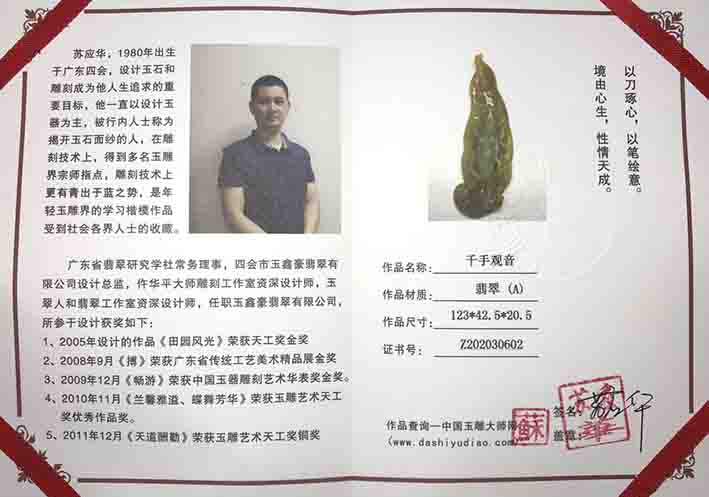 苏应华，1980年出生
于广东四会，设计玉石和
雕刻成为他人生追求的重
要目标，他一直以设计玉
器为主，被行内人士称为
揭开玉石面纱的人，在雕
刻技术上，得到多名玉雕
界宗师指点，雕刻技术上
更有青出于蓝之势，是年
轻玉雕界的学习楷模作品
受到社会各界人士的收藏。
广东省翡翠研究学社常务理事，四会市玉鑫豪翡翠有
限公司设计总监，仵华平大师雕刻工作室资深设计师，玉
翠人和翡翠工作室资深设计师，任职玉鑫豪翡翠有限公司，
所参于设计获奖如下：
1、2005年设计的作品《田园风光》荣获天工奖金奖
2、2008年9月《搏》荣获广东省传统工艺美术精品展金奖
3、2009年12月《畅游》荣获中国玉器雕刻艺术华表奖金奖。
4、2010年11月《兰馨雅溢、蝶舞芳华》荣获玉雕艺术天工
奖优秀作品奖。
5、2011年12月《天道酬勤》荣获玉雕艺术天工奖铜奖
以刀琢心，以笔绘意。
境由心生，性情天成。
作品名称：千手观音
作品材质：翡翠（A）
作品尺寸：123*42.5*20.5
证书号：Z202030602
签名：
盖章：
作品查询一中国玉雕大师网
（www.dashiyudiao.com）
蘇